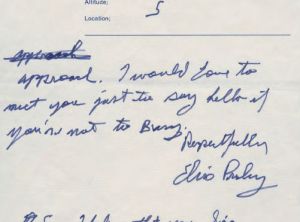 Altitude;
Location;
5
approach
approach. I would love to
meet you just to say hello if
you're not to Busy.
Respectfully
Elvis Presley